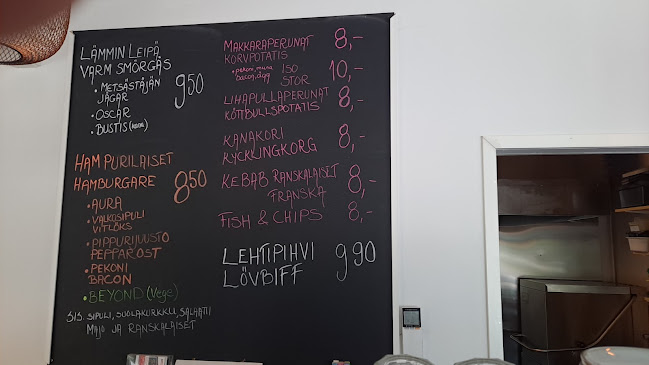 LÄMMIN LEIPÄ
VARM SMÖRGÅS
• METSÄSTÄJÄN 9,50
JÄGAR
• OSCAR
• BUSTIS (kana)
HAMPURILAISET
HAMBURGARE 8,50
• AURA
• VALKOSIPULI
VITLÖKS
• PIPPURIJUUSTO
PEPPAROST
• PEKONI
BACON
• BEYOND (Vege)
SIS. SIPULI, SUOLAKURKKU, SALAATTI
MAJO JA RANSKALAISET
MAKKARAPERUNAT 8,-
KORVPOTATIS
• pekoni, muna ISO 10,-
bacon, ägg STOR
LIHAPULLAPERUNAT 8,-
KÖTTBULLSPOTATIS
KANAKORI 8,-
KYCKLINGKORG
KEBAB RANSKALAISET 8,-
FRANSKA
FISH & CHIPS 8,-
LEHTIPIHVI 9,90
LÖVBIFF